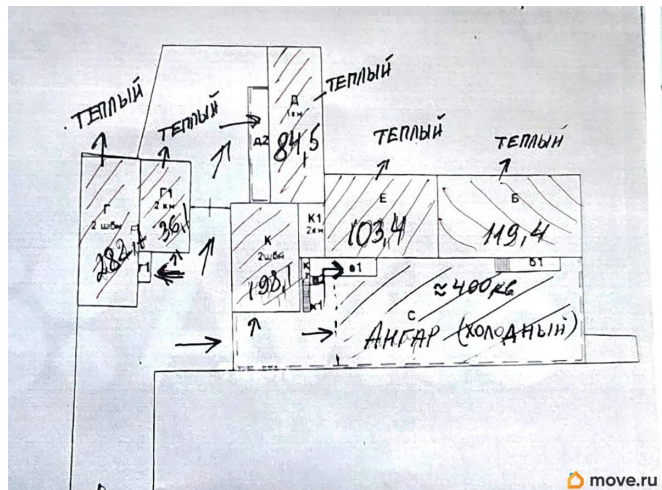 ТЕПЛЫЙ
ТЕПЛЫЙ
ТЕПЛЫЙ
ТЕПЛЫЙ
ТЕПЛЫЙ
Д
1кн
Д2
84,5
Г
2 швп
Г1
2 кн
36,1
Г1
К
2швп
198,1
К1
2кн
К
К1
Е
103,4
Б
119,4
в1
б1
≈ 400 кв
С
АНГАР (ХОЛОДНЫЙ)
move.ru